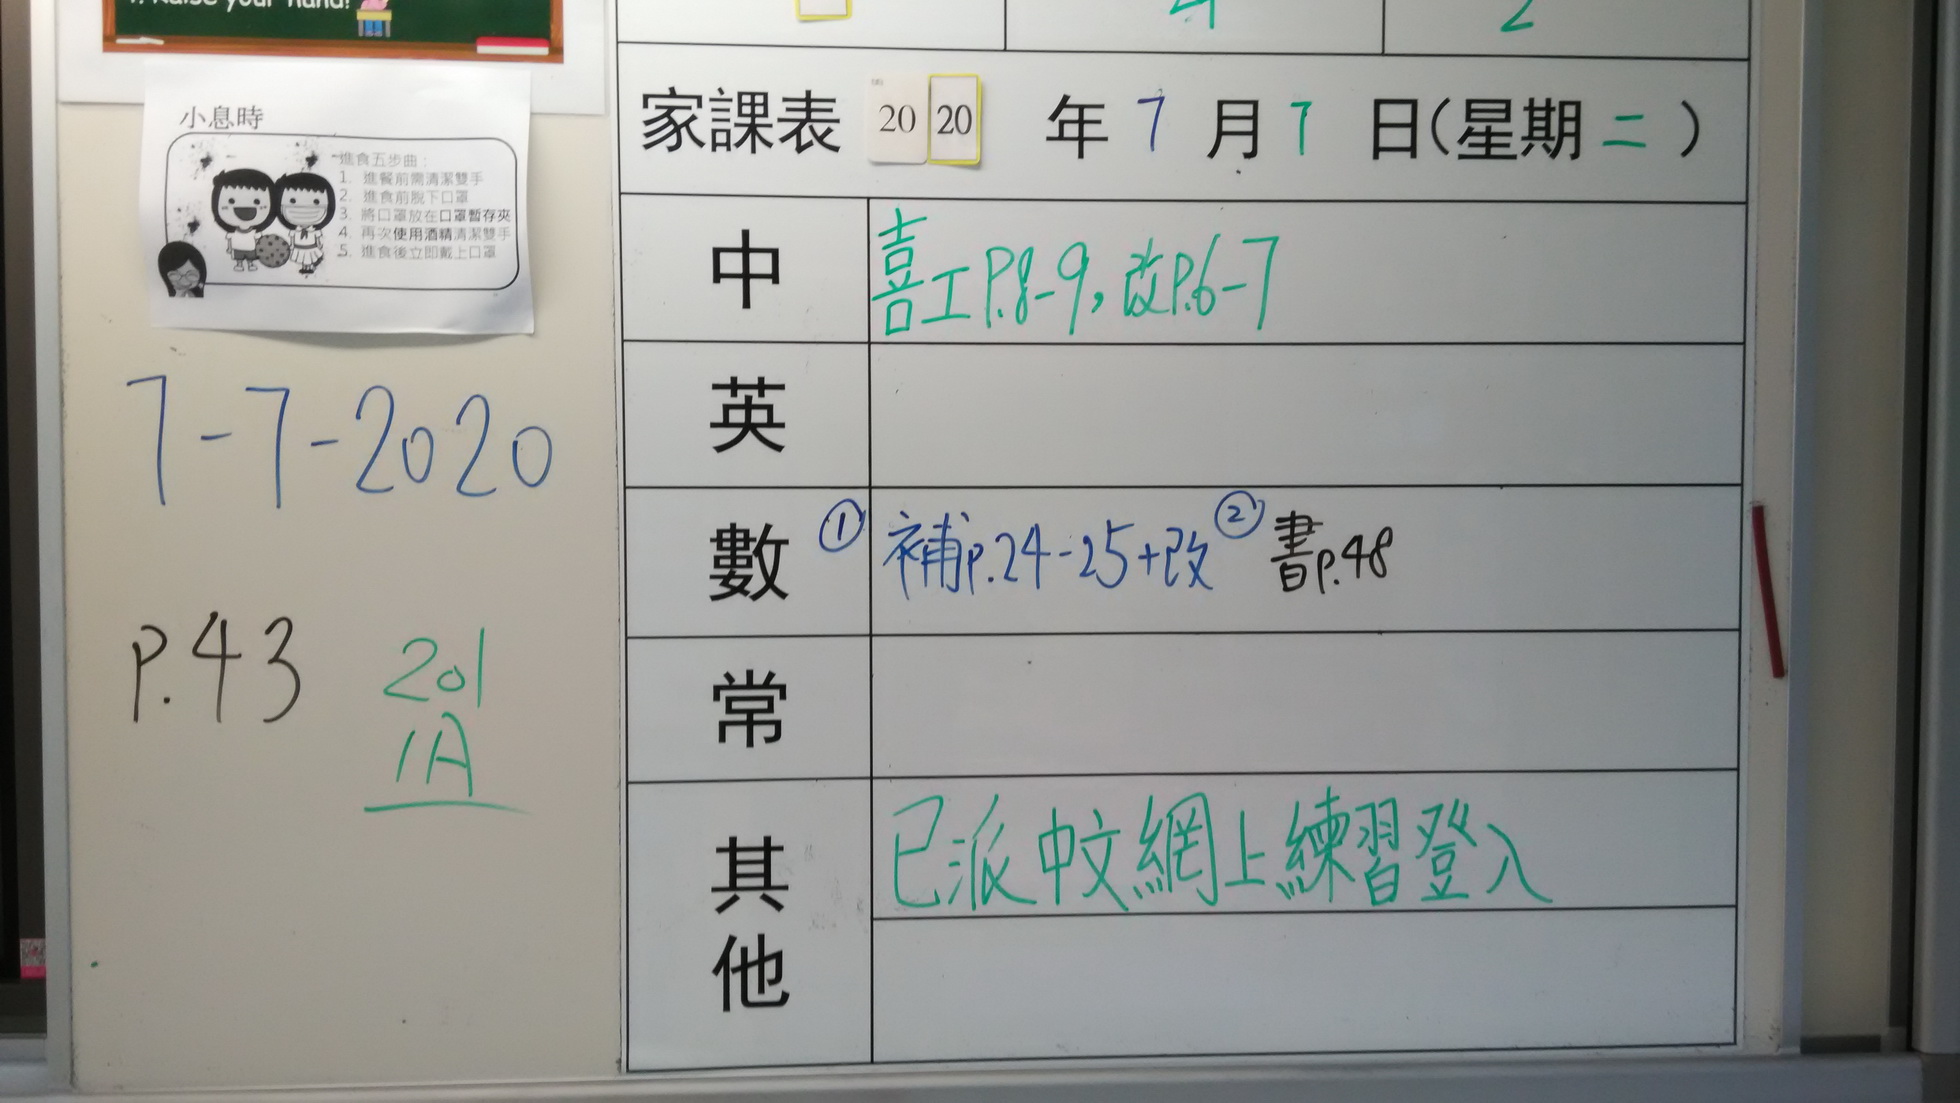 4. Raise your hand!
4 2
小息時
進食五步曲：
1. 進餐前需清潔雙手
2. 進食前脫下口罩
3. 將口罩放在口罩暫存夾
4. 再次使用酒精清潔雙手
5. 進食後立即戴上口罩
7-7-2020
P.43
201
1A
家課表 2020 年 7 月 7 日(星期二)
中 喜工P.8-9, 改P.6-7
英
數 ① 補p.24-25+改 ② 書p.48
常
其他 已派中文網上練習登入